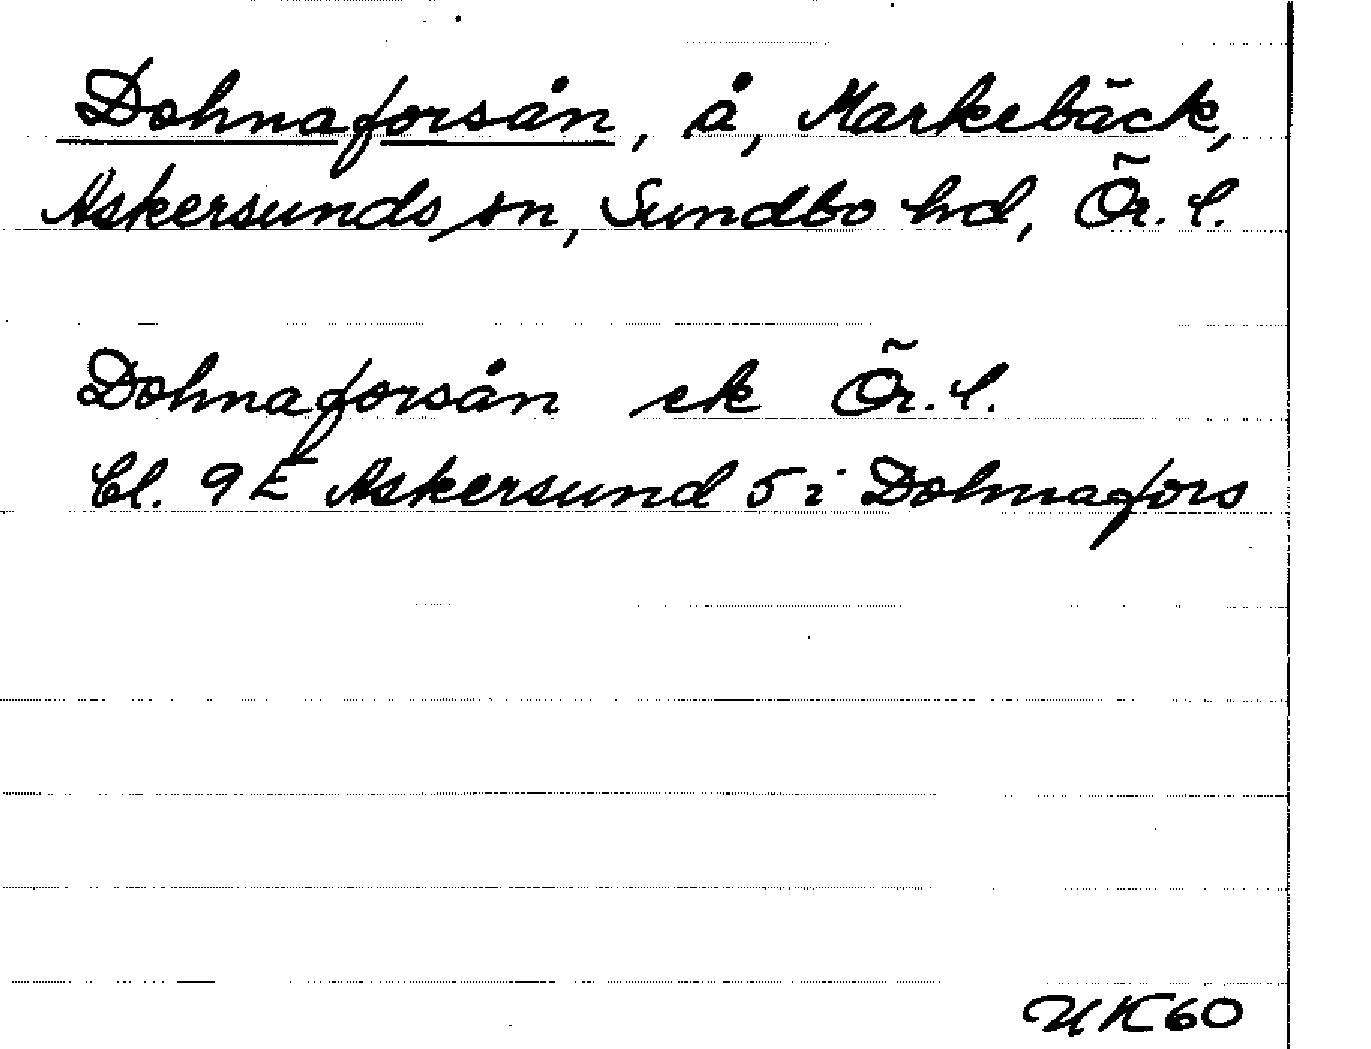 Dohnaforsån, å, Markebäck,
Askersunds sn, Sundbo hd, Ör. l.
Dohnaforsån ek Ör. l.
Bl. 9 E Askersund 5 i Dohnafors
UK60